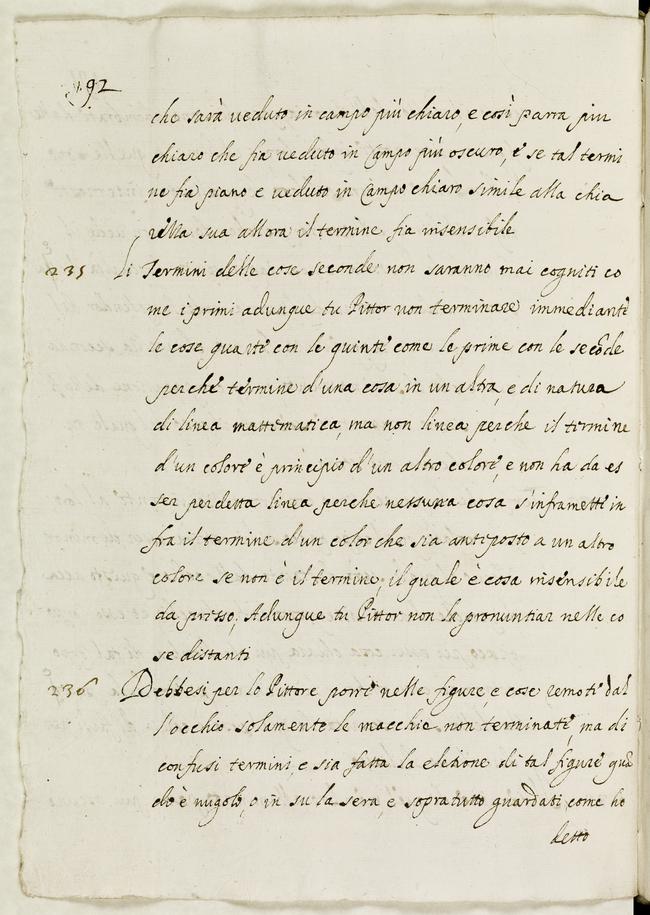 92
che sarà veduto in campo più chiaro, e così parra piu
chiaro che fia veduto in Campo più oscuro, e se tal termi
ne fia piano e veduto in Campo chiaro simile alla chia
rezza sua allora il termine fia insensibile
235 Li Termini delle cose seconde non saranno mai cogniti co
me i primi adunque tu Pittor non terminare immediante
le cose quarte con le quinte come le prime con le secõde
perche termine d'una cosa in un altra, e di natura
di linea mattematica, ma non linea perche il termine
d'un colore è principio d'un altro colore, e non ha da es
ser per detta linea perche nessuna cosa s'inframette in
fra il termine d'un color che sia antiposto a un altro
colore se non è il termine, il quale è cosa insensibile
da presso; Adunque tu Pittor non la pronuntiar nelle co
se distanti
236 Debbesi per lo Pittore porre nelle figure, e cose remote dal
l'occhio solamente le macchie non terminate, ma di
confusi termini, e sia fatta la eletione di tal figure quã
do è nugolo, o in su la sera, e sopratutto guardati come ho
detto